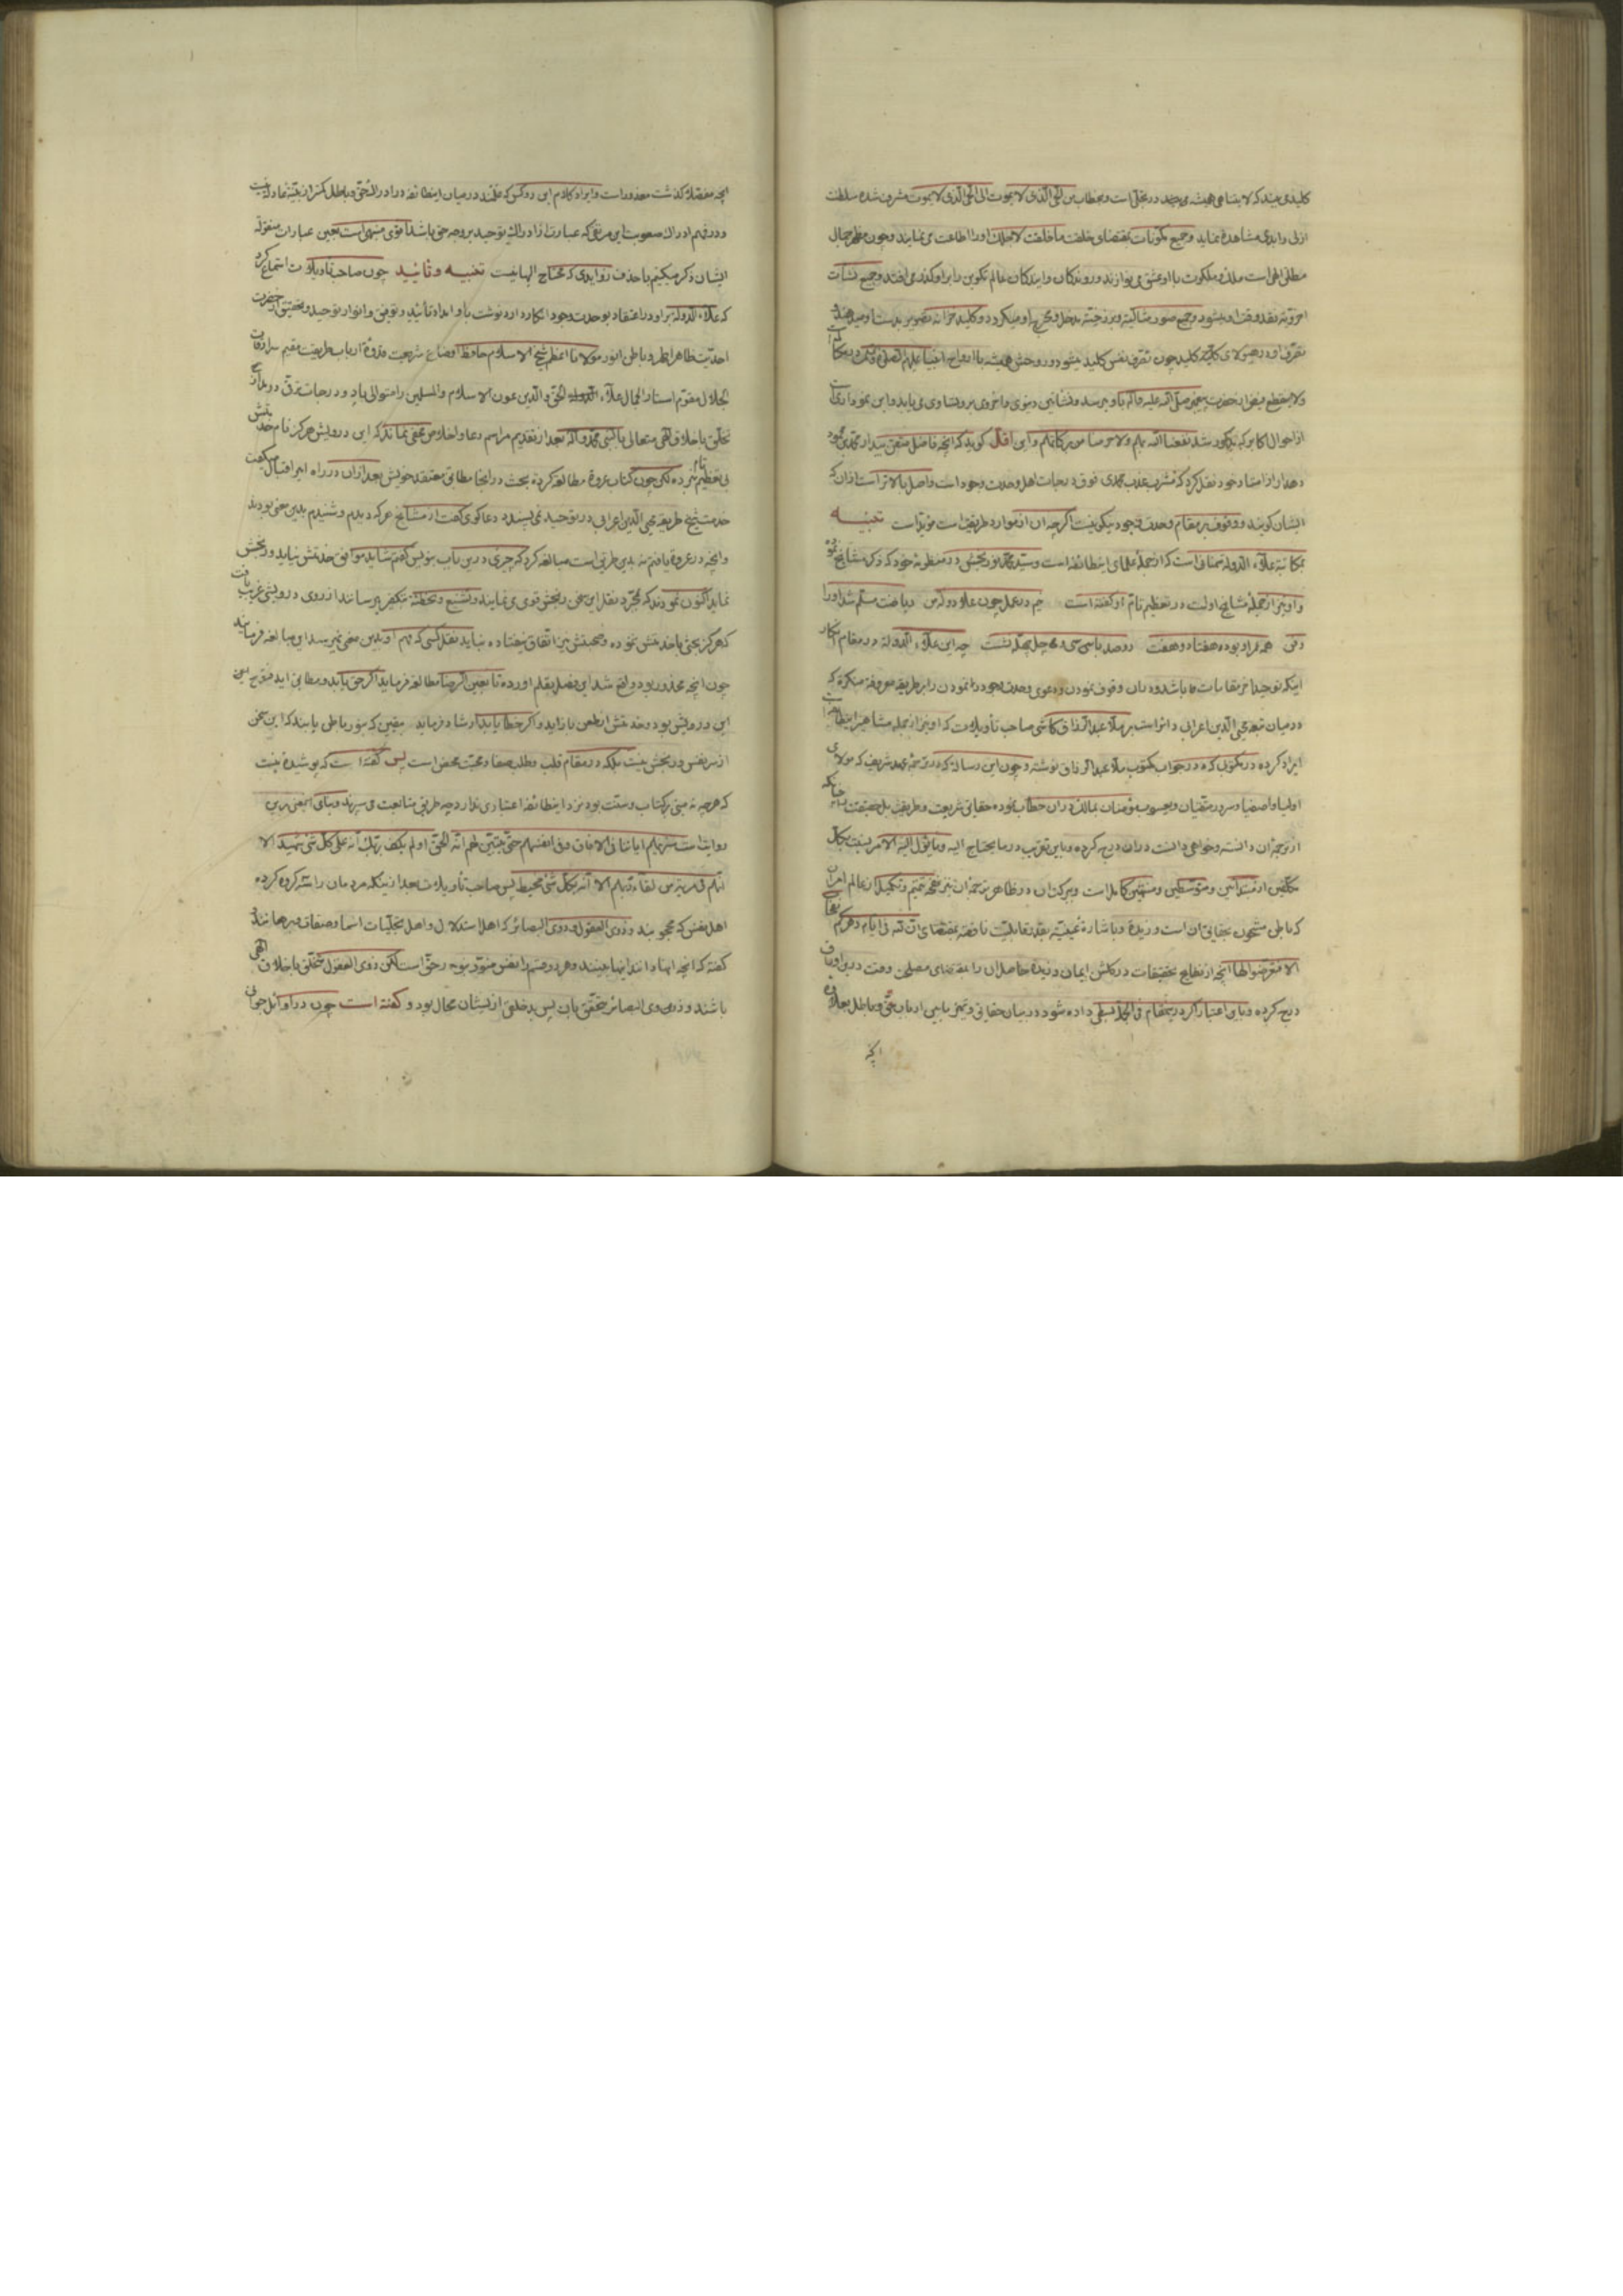 کلیدی بیند که لایتناهی همیشه می‌جهد در تجلّی است و بخطاب من الحیّ الّذی لا یموت الی الحیّ الّذی لا یموت مشرف شده سلطنت
ازلی و ابدی مشاهده نماید و جمیع مکونات بمقتضای خلقت ما خلقت لاجلک او را اطاعت می نمایند و چون مظهر جمال
مطلق الهی است ملک و ملکوت با او عشق می بوازند و روندگان و ایندگان عالم تکوین را بر او گذر می افتد و جمیع نشأت
تصرّف او در هیولای کلّیّه کلید چون تصرّف نفس کلید میشود و روحش همیشه با ارواح انبیا علیهم
ولا ینقطع فیض از حضرت پیغمبر صلّی الله علیه و آله باو میرسد و نشأتین دنیوی و اخروی بر و تساوی می یابد و این نموداری است
از احوال اکابر که مذکور شد نفعنا الله بهم ولا حرمنا من برکاتهم و این اقلّ گوید که آنچه فاضل متقن بیدار محمّد بن محمود
دهدار از استاد خود نقل کرد که مشرب عذب محمّدی فوق درجات اهل وحدت وجود است و اصل بالاتر است از آن که
ایشان گویند و وقوف بر مقام وحدت وجود نیکو نیست اگرچه آن از موارد طریقت است مؤیّد است تنبیه
بمکاتبه علاء الدوله سمنانی است که از جملۀ علمای این طائفه است و سیّد محمّد نوربخش در منظومۀ خود که ذکر مشایخ نموده
و او نیز از جملۀ مشایخ اوست در تعظیم تامّ او گفته است هم در عمل چون علاء دوله کس در ریاضت مسلّم شد او را
همه مراد بوده هفتاد و هفت دو صد با سی سی و ده چل چهلّه نشست چه این علاء الدوله در مقام انکار
اینکه توحید از مقامات ما باشد و در آن وقوف نمودن و دعوی وحدت وجود را نمودن را بر طریقه معروفه میکرده که
در میان تبعۀ محیی الدّین اعرابی دائر است بر ملّا عبد الرزّاق کاشی صاحب تأویلات که او نیز از جمله مشاهیر این طائفه است
ایراد کرده در مکتوبی که در جواب مکتوب ملّا عبد الرزاق نوشته و چون این رساله که در ترجمۀ عهد شریف که مولای
اولیا و اصفیا و سرور متّقیان و یعسوب مؤمنان بمالک در آن خطاب نموده حقایق شریعت و طریقت بل حقیقت چنانکه
از ترجمۀ آن دانسته و خواهی دانست در آن درج کرده و باین تقریب در ما یحتاج الیه و ما یؤل الیه الامر بنسبت بکلّ
مکلّفین از مبتدائین و متوسّطین و منتهین کاملا است و ببرکت آن در ظاهر ترجمۀ آن نیز نفحه تتمیم و تکمیل از عالم امر
که باطن مشحون بحقایق آن است وزیده و باشارۀ غیبیّه بقدر قابلیّت ناقصه بمقتضای ان لله فی ایام دهرکم نفحات
الا فتعرضوا لها آنچه از نفایح تحقیقات در گلش ایمان وزیده حاصل آن را بمقتضای مصلحت وقت درین اوراق
درج کرده و باین اعتبار اگر درین مقام فی الجمله بسطی داده شود در بیان حقایق و تمیّز ما بین ارباب حقّ و باطل بعد از
آنچه
آنچه مفصّلا گذشت معذور است و ایراد کلام این دو کس که علمند در میان این طائفه در ادراک حقّ و باطل کمتر از بیّنۀ عادله نیست
و در فهم ادراک صعوبت این مرتقی که عبارت از ادراک توحید بر وجه حق باشد اقوی منبهی است بعین عبارات منقوله
ایشان ذکر میکنیم با حذف زوایدی که محتاج الیها نیست تنبیه و تأیید چون صاحب تأویلات استماع کرد
که علاء الدوله بر او در اعتقاد بوحدت وجود انکار دارد نوشت باو امداد تأیید و توفیق و انوار توحید و تحقیق از حضرت
احدیّت بظاهر اطهر و باطن انور مولانا اعظم شیخ الاسلام حافظ اوضاع شریعت قدوۀ ارباب طریقت مقیم سرادقات
الجلال مقوّم استار الجمال علاء الحقّ و الدّین عون الاسلام و المسلمین را متوالی باد و درجات ترقّی در مدارج
تخلّق باخلاق الهی متعالی بالنبی محمّد و آله بعد از تقدیم مراسم دعا و اخلاص مخفی نماند که این درویش هرگز نام خدمتش
بی تعظیم تام نبرده لکن چون کتاب عروة مطالعه کرد بحث در آنجا مطابق معتقد خویش بعد از آن در راه امیر اقبال میگفت
خدمت شیخ طریقه محیی الدّین اعرابی در توحید نمی پسندد دعا گوی گفت از مشایخ هر که دیدم و شنیدم بدین معنی بودند
و آنچه در عروة یافتم نه بدین طریق است مبالغه کرد که چیزی درین باب بنویس گفتم شاید موافق خدمتش نیاید و رنجش
نماید اکنون نمودند که بمجرّد نقل این سخن رنجش قوی می نمایند و تشنیع و تخطئه بتکفیر میرسانند از روی درویشی غریب یافت
که هرگز بحثی با خدمتش نبوده و صحبتش نیز اتفاق نیفتاده نباید بنقل کسی که فهم او بدین معنی نمیرسد این مبالغه فرمایند
چون آنچه محذور بود واقع شد این فصل بقلم آورده تا بعین الرضا مطالعه فرماید اگر حق یابد و مطابق آید فتوح
این درویش بود و خدمتش از طعن باز آید و اگر خطا یابد ارشاد فرماید یقین که بنور باطن یابند که این سخن
از سر نفس و رنجش نیست بلکه در مقام قلب و طلب صفا و محبّت محض است پس گفته است که پوشیده نیست
که هر چه نه مبنی بر کتاب و سنّت بود نزد این طائفه اعتباری ندارد چه طریق متابعت می سپرند و بنای این معنی برین
دو آیت است سنریهم ایاتنا فی الافاق وفی انفسهم حتّی یتبیّن لهم انّه الحقّ اولم یکف بربّک انّه علی کلّ شئ شهید الا
انّهم فی مریة من لقاء ربّهم الا انّه بکلّ شئ محیط پس صاحب تأویلات بعد از اینکه مردمان را سه گروه کرده
اهل نفس که محجوبند و ذوی العقول و ذوی البصائر که اهل استدلال و اهل تجلّیات اسما و صفات میرهانند
گفته که آنچه آنها دانند اینها بینند و هر دو قسم را نفس منوّر بنور حقّ است لکن ذوی العقول متخلّق باخلاق الهی
باشند و ذوی البصائر متحقّق بآن پس بد خلقی از ایشان محال بود و گفته است چون در اوائل جوانی